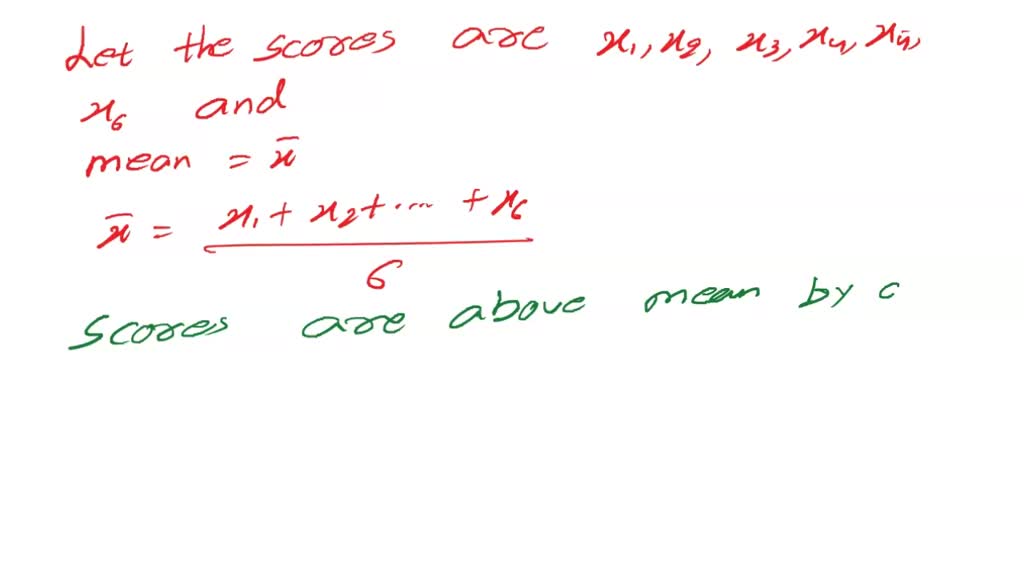 Let the scores are x₁, x₂, x₃, x₄, x₅,
x₆ and
mean = x̄
x̄ = x₁ + x₂ + .... + x₆
6
scores are above mean by a